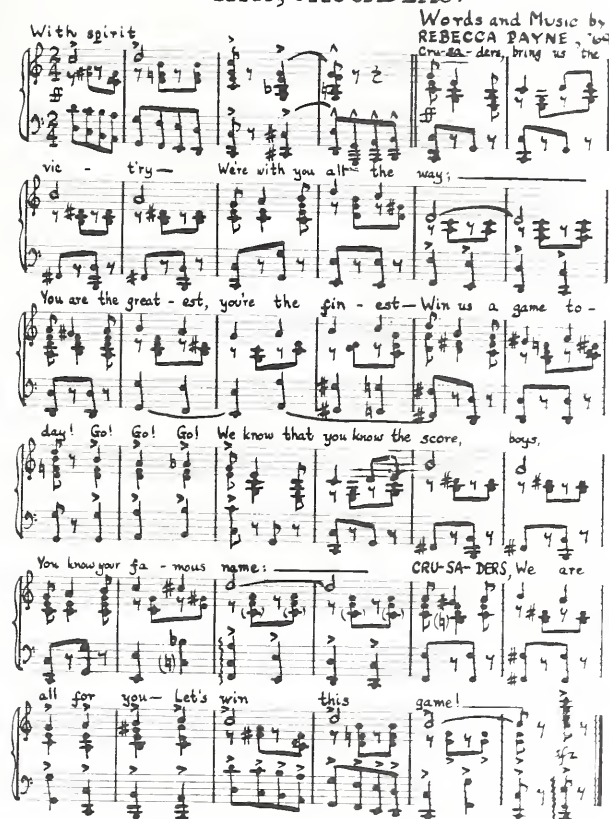 Words and Music by
With spirit
REBECCA PAYNE, '69
Cru-sa-ders, bring us the
vic - t'ry— We're with you all the way;
You are the great-est, you're the fin-est—Win us a game to-
day! Go! Go! Go! We know that you know the score, boys,
You know your fa-mous name: CRU-SA-DERS, We are
all for you— Let's win this game!
sfz